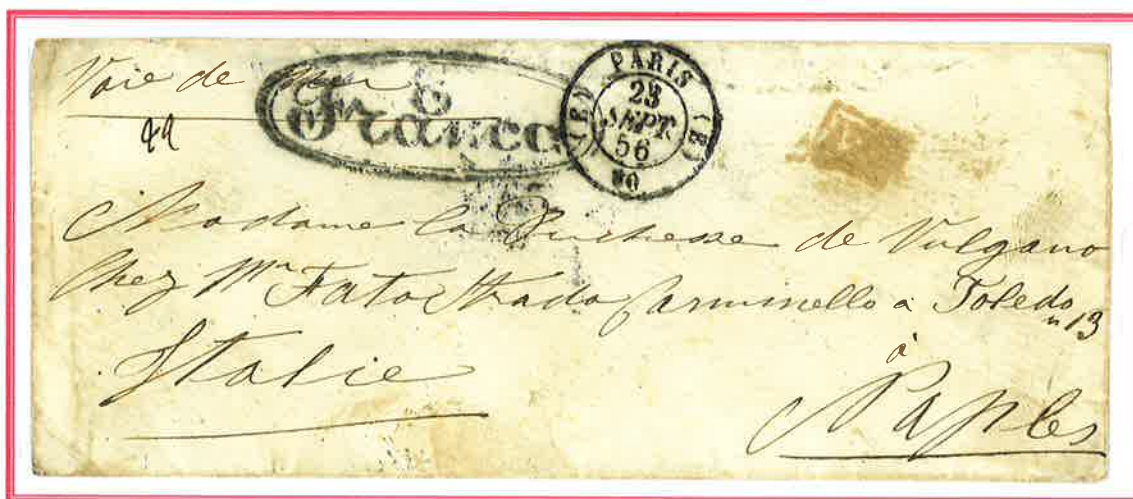 Voie de mer
6
Franca
PARIS
23
SEPT.
56
Madame la Duchesse de Vulgano
Chez Mr Fato Strada Carminello a Toledo
n 13
Italie
à
Naples